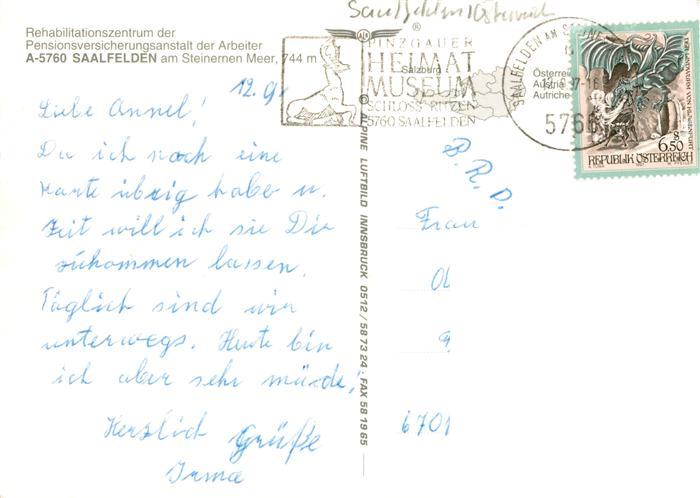 Saalfelden Österreich
Rehabilitationszentrum der
Pensionsversicherungsanstalt der Arbeiter
A-5760 SAALFELDEN am Steinernen Meer, 744 m
Salzburg
Österreich
Austria
Autriche
PINZGAUER
HEIMAT
MUSEUM
SCHLOSS RITZEN
5760 SAALFELDEN
SAALFELDEN AM STEINE
5760
S
6.50
REPUBLIK ÖSTERREICH
12.9.
Liebe Annel!
Da ich noch eine
Karte übrig habe u.
Zeit will ich sie Dir
zukommen lassen.
Täglich sind wir
unterwegs. Heute bin
ich aber sehr müde,
Herzlich Grüße
Irma
© ALPINE LUFTBILD INNSBRUCK 0512/587324, FAX 581985
B.R.D.
Frau
Ol
9
6701